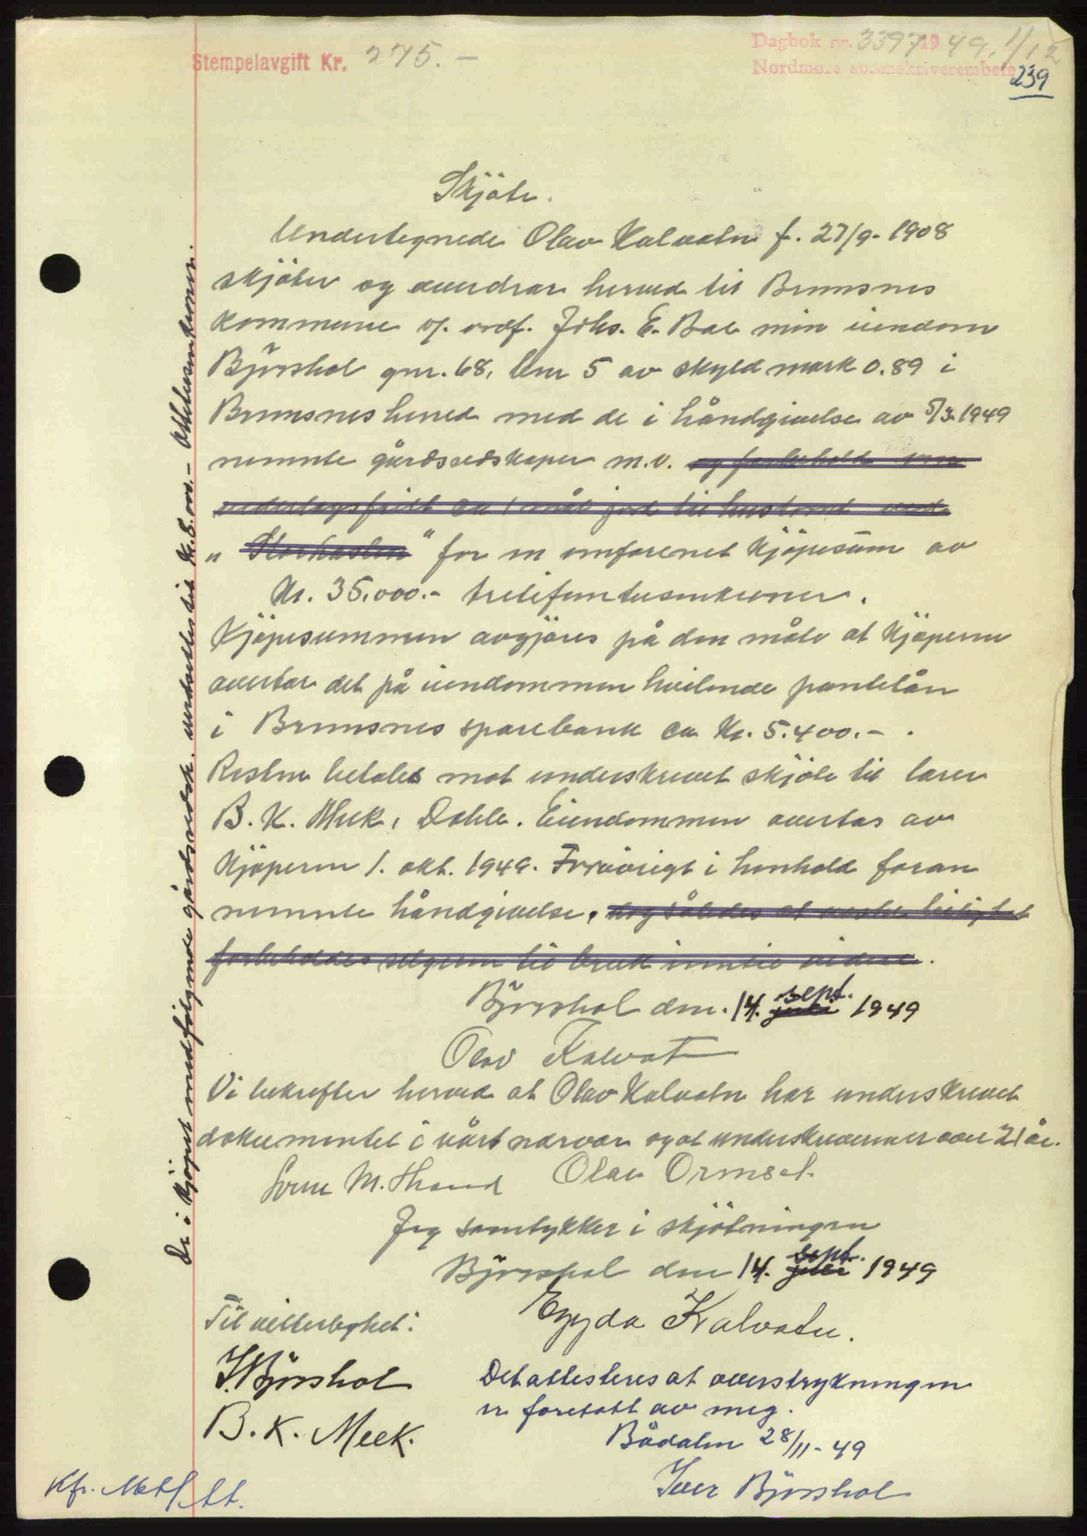 Stempelavgift Kr. 275.-
Dagbok nr. 3397 1949. 1/12
Nordmøre sorenskriverembete
239
Skjöte.
Undertegnede Olav Kalvatn f. 27/9-1908
skjöter og overdrar herved til Bremsnes
kommune v/. ordf. Johs. E. Bae min eiendom
Björshol gnr. 68, bnr 5 av skyld mark 0.89 i
Bremsnes herred med de i håndgivelse av 5/3 1949
nevnte gårdsredskaper m.v. og forbehold om
vederlagsfritt ca 1 mål jord til hustomt ved
" Storhaslen " for en omforenet kjöpesum av
Kr. 35.000.- trettifemtusenkroner.
Kjöpesummen avgjöres på den måte at kjöperen
overtar det på eiendommen hvilende pantelån
i Bremsnes sparebank ca Kr. 5.400.- .
Resten betales mot underskrevet skjöte til lærer
B. K. Meek, Dahle. Eiendommen overtas av
kjöperen 1. okt. 1949. Forövrigt i henhold foran
nevnte håndgivelse, dog således at leilighet
forbeholdes selgeren til bruk inntil videre.
Björshol den. 14. juli sept. 1949
Olav Kalvatn
Vi bekrefter herved at Olav Kalvatn har underskrevet
dokumentet i vårt nærvær og at underskriveren er over 21 år.
M. Strand Olav Ormset.
Jeg samtykker i skjötningen
Björshol den 14. juli sept. 1949
Eyda Kalvatn.
Til vitterlighet:
J. Björshol
B. K. Meek.
Det attesteres at overstrykningen
er foretatt av meg.
Bådalen 28/11-49
Iver Björshol
Kfr.
De i kjöpet medfölgende gårdsredsk. verdsettes til Kr. 8.000.- Ottetusenkroner.